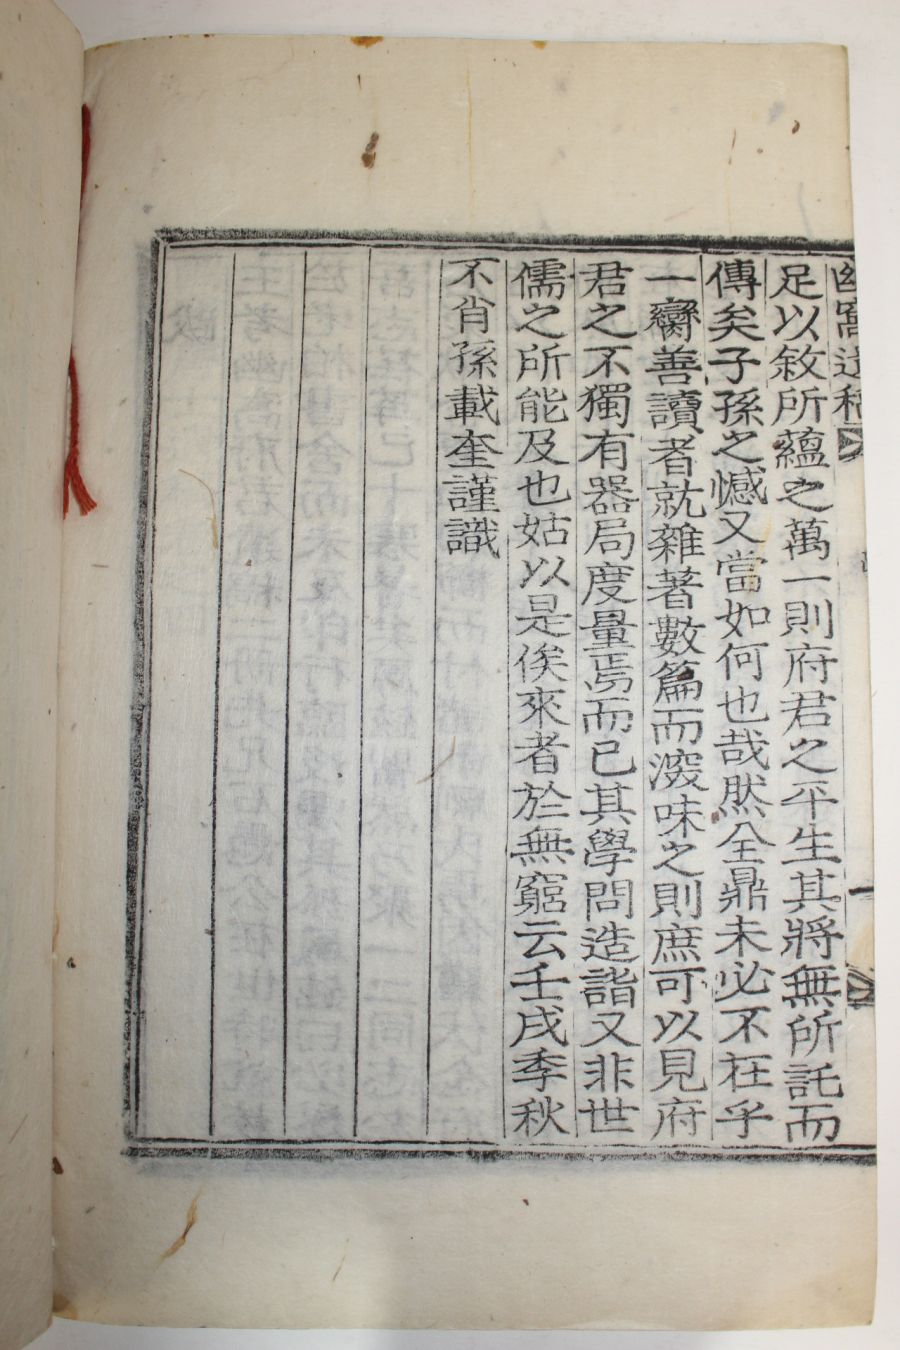 幽窩遺稿
足以敘所蘊之萬一則府君之平生其將無所託而
傳矣子孫之憾又當如何也哉然全鼎未必不在乎
一臠善讀者就雜著數篇而深味之則庶可以見府
君之不獨有器局度量焉而已其學問造詣又非世
儒之所能及也姑以是俟來者於無窮云壬戌季秋
不肖孫載奎謹識